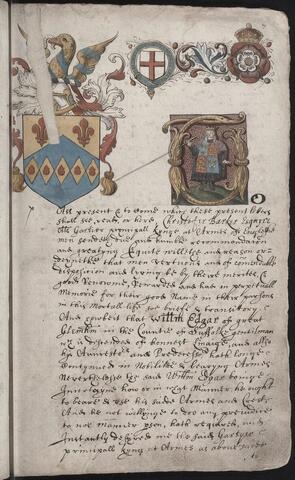 All present & to Come whom these present letters
shall see, reade, or heare, Christofer Barker Esquire
Garter principall Kinge of Armes of Englishe
men sendeth due and humble recommendation
and greatyng Equite willeth and reason or-
deyneth that men vertuous and of
disposicion and lyvinge be by there merites &
good Renowne, Rewarded and had in perpetuall
Memorie for their good Name in their persons
in this Mortall life so briefe & transitory.
And forbeit that Willm Edgar of great
Glemham in the Countie of Suffolke gentilman
is discended of honnest Linaige, and allso
his Auncestre and Predecess hath longe
Contynued in Nobilitie & bearyng Armes
Neverthelesse he said Willm Edgar beinge
how or in what Manner he ought
to beare & use his saide Armes and Crest
And he not willynge to doe any prejudice
to noe Manner person, hath required, and
Instantly desyred me the said Garter
principall Kyng of Armes as above saide
to